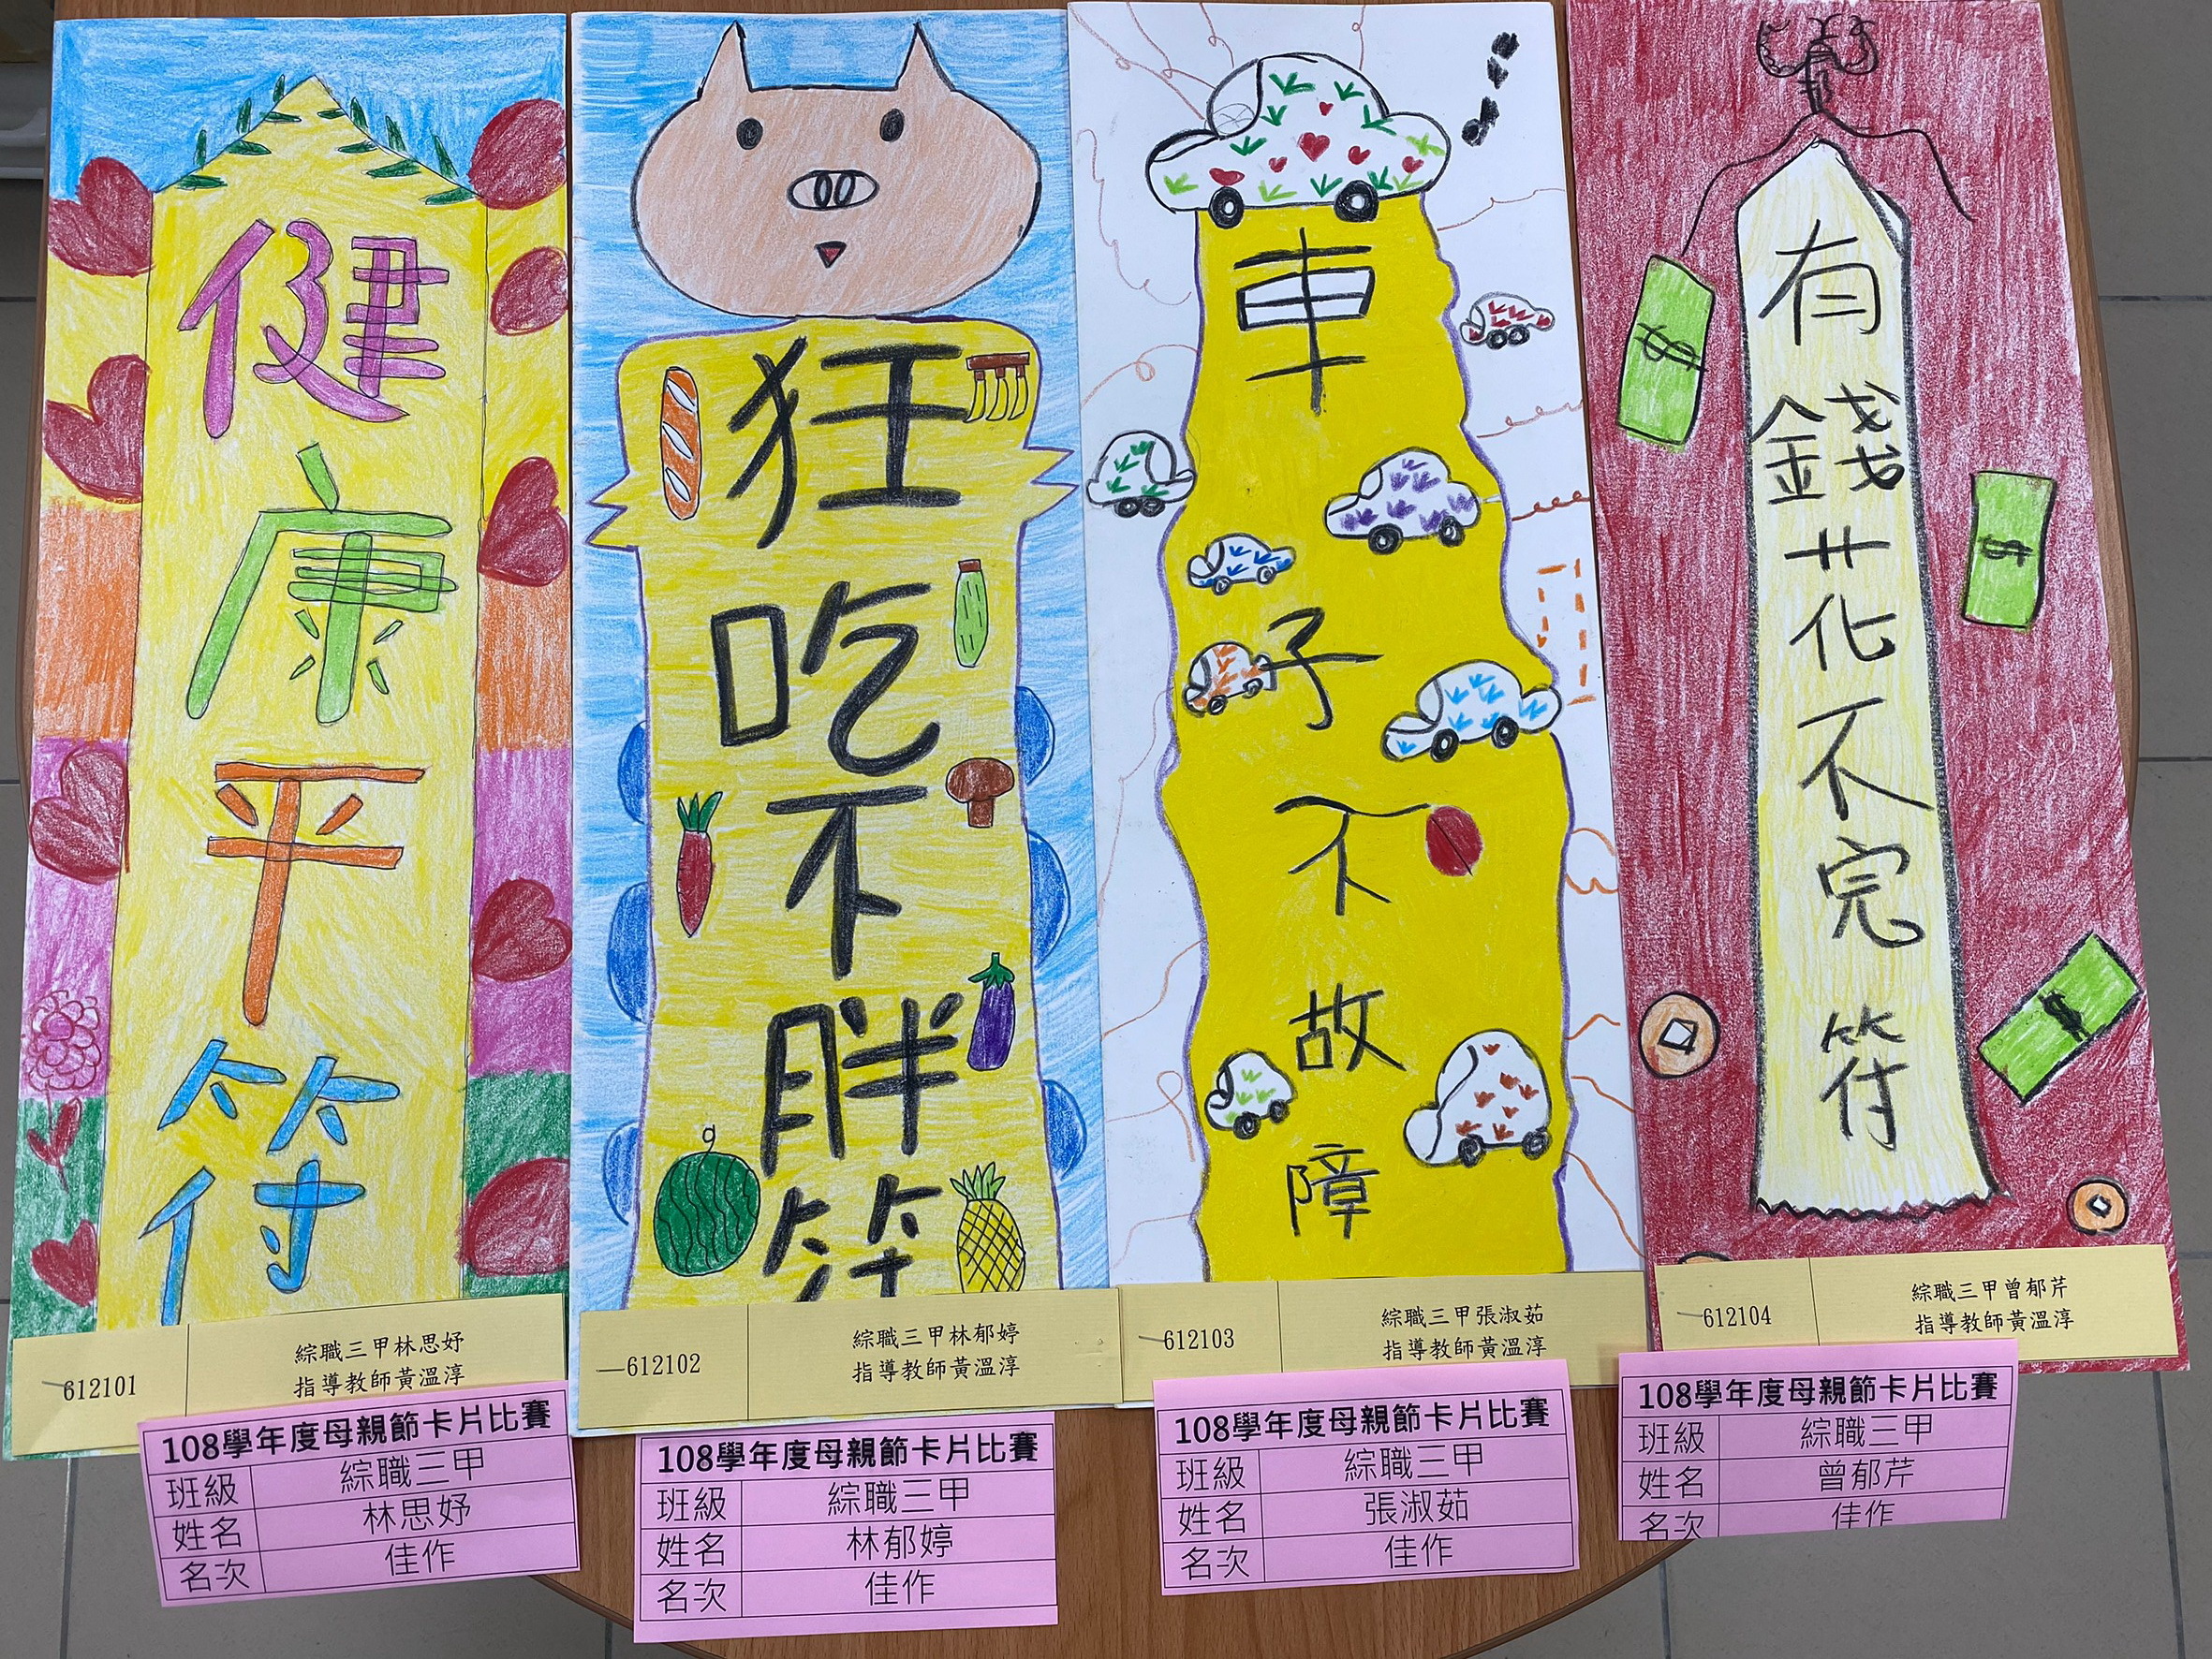 健康平符
612101
綜職三甲林思妤
指導教師黃溫淳
108學年度母親節卡片比賽
班級 綜職三甲
姓名 林思妤
名次 佳作
狂吃不胖符
612102
綜職三甲林郁婷
指導教師黃溫淳
108學年度母親節卡片比賽
班級 綜職三甲
姓名 林郁婷
名次 佳作
車子不故障
612103
綜職三甲張淑茹
指導教師黃溫淳
108學年度母親節卡片比賽
班級 綜職三甲
姓名 張淑茹
名次 佳作
有錢花不完符
$
$
$
612104
綜職三甲曾郁芹
指導教師黃溫淳
108學年度母親節卡片比賽
班級 綜職三甲
姓名 曾郁芹
名次 佳作